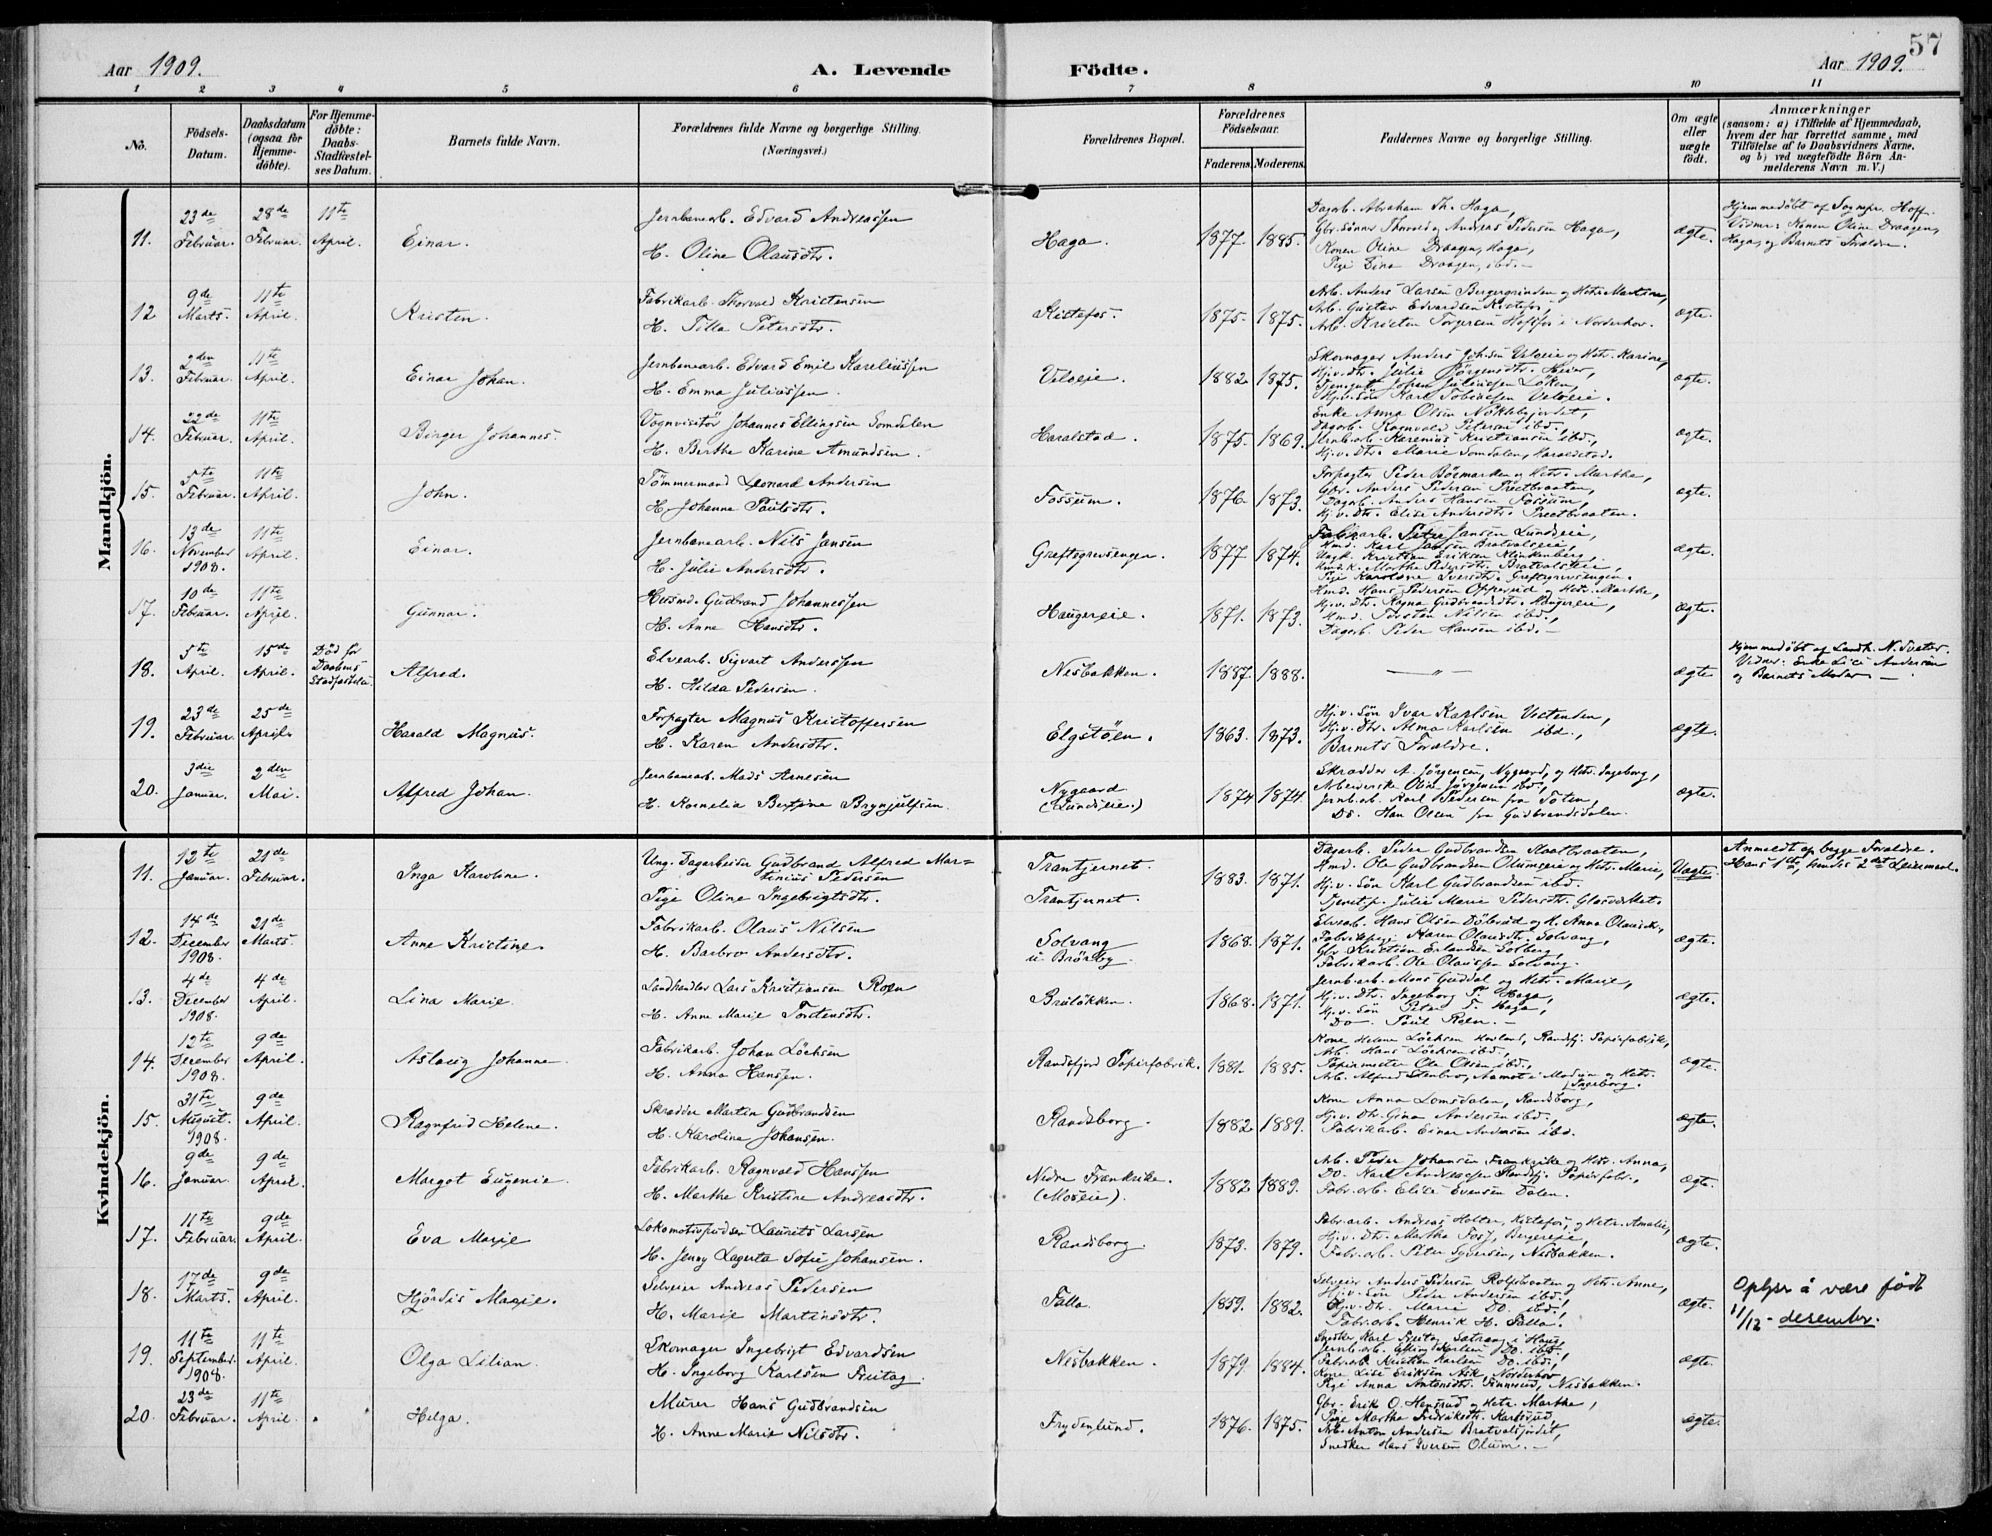 57
Aar 1909.
A. Levende Födte.
Aar 1909.
1 2 3 4 5 6 7 8 9 10 11
No.
Födsels-Datum.
Daabsdatum (ogsaa for Hjemme-döbte).
For Hjemme-döbte: Daabs-Stadfæstel-ses Datum.
Barnets fulde Navn.
Forældrenes fulde Navne og borgerlige Stilling.
(Næringsvei.)
Forældrenes Bopæl.
Forældrenes Födselsaar.
Faderens. Moderens.
Faddernes Navne og borgerlige Stilling.
Om ægte eller uægte födt.
Anmærkninger
(saasom: a) i Tilfælde af Hjemmedaab, hvem der har forrettet samme, med Tilföielse af to Daabsvidners Navne, og b) ved uægtefödte Börn An-melderens Navn m. V.)
Mandkjön.
11. 23de Februar. 28de Februar. 11te April. Einar. Jernbanearb. Edvard Andreassen
H. Oline Olausdtr. Haga. 1877. 1885. Dagarb. Abraham Th. Haga,
Gbr.sönner Thorvald og Andreas Pedersen Haga,
Konen Oline Draagen, Haga,
Pige Lina Draagen, ibd. ægte. Hjemmedöbt af Sognepr. Hoff.
Vidner: Konen Oline Draagen,
Haga, og Barnets Forældre.
12 9de Marts. 11te April. Kristen. Fabrikarb. Thorvald Kristensen
H. Tilla Petersdtr. Kistefos. 1875. 1875. Arb. Anders Larsen Bergergrinden og Hstr. Martine,
Arb. Gustav Edvardsen Kistefos,
Arb. Kristen Torgersen Hofsfos i Norderhov. ægte.
13. 2den Februar. 11te April. Einar Johan. Jernbanearb. Edvard Emil Kareliussen
H. Emma Juliussen. Veloeie. 1882 1875. Skomager Anders Johnsen Veloeie og Hstr. Karine,
Hj.v. Dtr. Julie Jörgensdtr. Hæier,
Tjenegut Johan Juliussen Löken,
Hj.v. Sön Karl Tobiassen Veloeie. ægte.
14. 22de Februar. 11te April. Birger Johannes. Vognvisitör Johannes Ellingsen Somdalen
H. Berthe Karine Amundsen. Haralstad. 1875. 1869. Enke Anna Olsen Nöklebyjordet,
Dagarb. Ragnvald Petersen ibd.,
Jernb.arb. Karenius Kristiansen ibd.,
Hj.v. Dtr. Marie Somdalen, Haralstad. ægte.
15. 5te Februar. 11te April. John. Tömmermand Leonard Andersen
H. Johanne Paulsdtr. Fossum. 1876. 1873. Forpagter Peder Börmarken og Hstr. Marthe,
Gbr. Anders Pedersen Præstbraaten,
Dagarb. Anders Hansen Fossum,
Hj.v. Dtr. Elise Andersdtr. Præstbraaten. ægte.
16. 13de November 1908. 11te April. Einar. Jernbanearb. Nils Jansen
H. Julie Andersdtr. Greftegrevsenger. 1877 1874. Fabrikarb. Peder Jansen Lundseie,
Hmd. Karl Jansen Bratvalseie,
Ungk. Kristian Eriksen Klinkenberg,
Husm.k. Marthe Pedersdtr. Bratvalseie,
Pige Karoline Iversdtr. Greftegrevsengen. ægte.
17. 10de Februar. 11te April. Gunnar. Husmd. Gudbrand Johannessen
H. Anne Hansdtr. Haugereie. 1871. 1873. Hmd. Hans Pedersen Opperud og Hstr. Marthe,
Hj.v. Dtr. Ragna Gudbrandsdtr. Haugereie,
Hmd. Torsten Nilsen ibd.,
Dagarb. Peder Hansen ibd. ægte.
18. 5te April. 15de April. Död för Daabens Stadfæstelse. Alfred. Elvearb. Sigvart Anderssen
H. Hilda Pedersen. Nesbakken. 1887. 1888. — „ — ægte Hjemmedöbt af Landh. N. Tveter.
Vidner: Enke Lise Andersen
og Barnets Moder.
19. 23de Februar. 25de April. Harald Magnus. Forpagter Magnus Kristoffersen
H. Karen Andersdtr. Elgstöen. 1863. 1873. Hj.v. Sön Ivar Karlsen Vestenden,
Hj.v. Dtr. Alma Karlsen ibd.,
Barnets Forældre. ægte.
20. 3die Januar. 2den Mai. Alfred Johan. Jernbanearb. Mads Arnesen
H. Kornelia Bertine Brynjulfsen. Nygaard (Lundseie.) 1874 1874. Skrædder A. Jörgensen, Nygaard, og Hstr. Ingeborg,
Arbeiderske Olise Jörgensen ibd.,
Jernb.arb. Karl Pedersen fra Toten,
Do. Han Olsen fra Gudbrandsdalen. ægte.
Kvindekjön.
11. 12te Januar. 21de Februar. Inga Karoline. Ung. Dagarbeider Gudbrand Alfred Mar=
tinius Pedersen
Pige Oline Ingebrigtsdtr. Trantjernet.
Trantjernet. 1883. 1871. Dagarb. Peder Gudbrandsen Slaatbraaten,
Hmd. Ole Gudbrandsen Olumseie og Hstr. Marie,
Hj.v. Sön Karl Gudbrandsen ibd.
Tjenstp. Julie Marie Pedersdtr. Glasværket. Uægte. Anmeldt af begge Forældre.
Hans 1ste, hendes 2det Leiermaal.
12. 14de December 1908. 21de Marts. Anne Kristine. Fabrikarb. Olaus Nilsen
H. Barbro Andersdtr. Solvang u. Brörby. 1868. 1871. Elvearb. Hans Olsen Döbrud og H. Anna Olausdtr.,
Fabrikpige Karen Olausdtr. Solvang,
Gbr. Kristian Erlandsen Solberg,
Fabrikarb. Ole Olaussen Solvang. ægte.
13. 4de December 1908. 4de April. Lina Marie. Landhandler Lars Kristiansen Roen
H. Anne Marie Torstensdtr. Bruløkken. 1868. 1871. Jernb.arb. Mons Guddal og Hstr. Marie,
Hj.v. Dtr. Ingeborg P. Haga,
Hj.v. Sön Peter P. Haga,
Do. Paul Roen. ægte.
14. 12te December 1908. 9de April. Aslaug Johanne. Fabrikarb. Johan Löchsen
H. Anna Hansen. Randsfjord Papirfabrik. 1881. 1885. Kone Helene Löchsen Hovland, Randsfj. Papirfabrik,
Arb. Hans Löchsen ibd.,
Papirmester Ole Olsen ibd.,
Arb. Alfred Stenbro, Aamot i Modum og Hstr. Ingeborg. ægte.
15. 31te August. 1908. 9de April. Ragnfrid Helene. Skrædder Martin Gudbrandsen
H. Karoline Johansen. Randsborg. 1882 1889. Kone Anna Lomsdalen, Randsborg,
Hj.v. Dtr. Gina Andersen ibd.,
Fabrikarb. Einar Andersen ibd. ægte.
16. 9de Januar. 9de April. Margot Eugenie. Fabrikarb. Ragnvald Hanssen
H. Marthe Kristine Andreasdtr. Nedre Frankrike. (Moseie). 1882 1889. Arb. Peder Johansen Frankrike og Hstr. Anna,
Do. Karl Andreassen Randsfj. Papirfabr.,
Fabr.arb. Elise Evensen Dalen. ægte.
17. 11te Februar. 9de April. Eva Marie Lokomotivpudser Laurits Larsen
H. Jenny Lagerta Sofie Johansen. Randsborg. 1873. 1879. Fabr.arb. Andreas Holter, Kistefos, og Hstr. Amalie,
Hj.v. Dtr. Martha Fosz, Bergereie,
Fabr.arb. Peter Syversen, Nesbakken. ægte.
18. 17de Marts. 9de April. Hjördis Marie. Selveier Andreas Pedersen
H. Marie Martinsdtr. Falla. 1859. 1882. Selveier Anders Pedersen Rolfsbraaten og Hstr. Anne,
Hj.v. Sön Peder Andersen ibd.,
Hj.v. Dtr. Marie Do. ibd.,
Fabr.arb. Henrik H. Falla. ægte. Oplyser å være född
11/12 - desember.
19. 11te September. 1908. 11te April. Olga Lilian. Skomager Ingebrigt Edvardsen
H. Ingeborg Karlsen Freitag. Nesbakken. 1879. 1884. Snedker Karl Freitag Sætrang i Haug,
Jernb.arb. Elling Karlsen Do. ibd.,
Fabr.arb. Kristian Karlsen Do. ibd.,
Kone Lise Eriksen Ask, Norderhov
Pige Anna Antonsdtr. Finnerud, Nesbakken. ægte.
20. 23de Februar. 11te April. Helga. Murer Hans Gudbrandsen
H. Anne Marie Nilsdtr. Frydenlund. 1876. 1875. Gbr. Erik O. Hensrud og Hstr. Marthe,
Pige Marthe Fredriksdtr. Karlsrud,
Arb. Anton Andersen Bratvalsjordet,
Snedker Hans Iversen Olum. ægte.